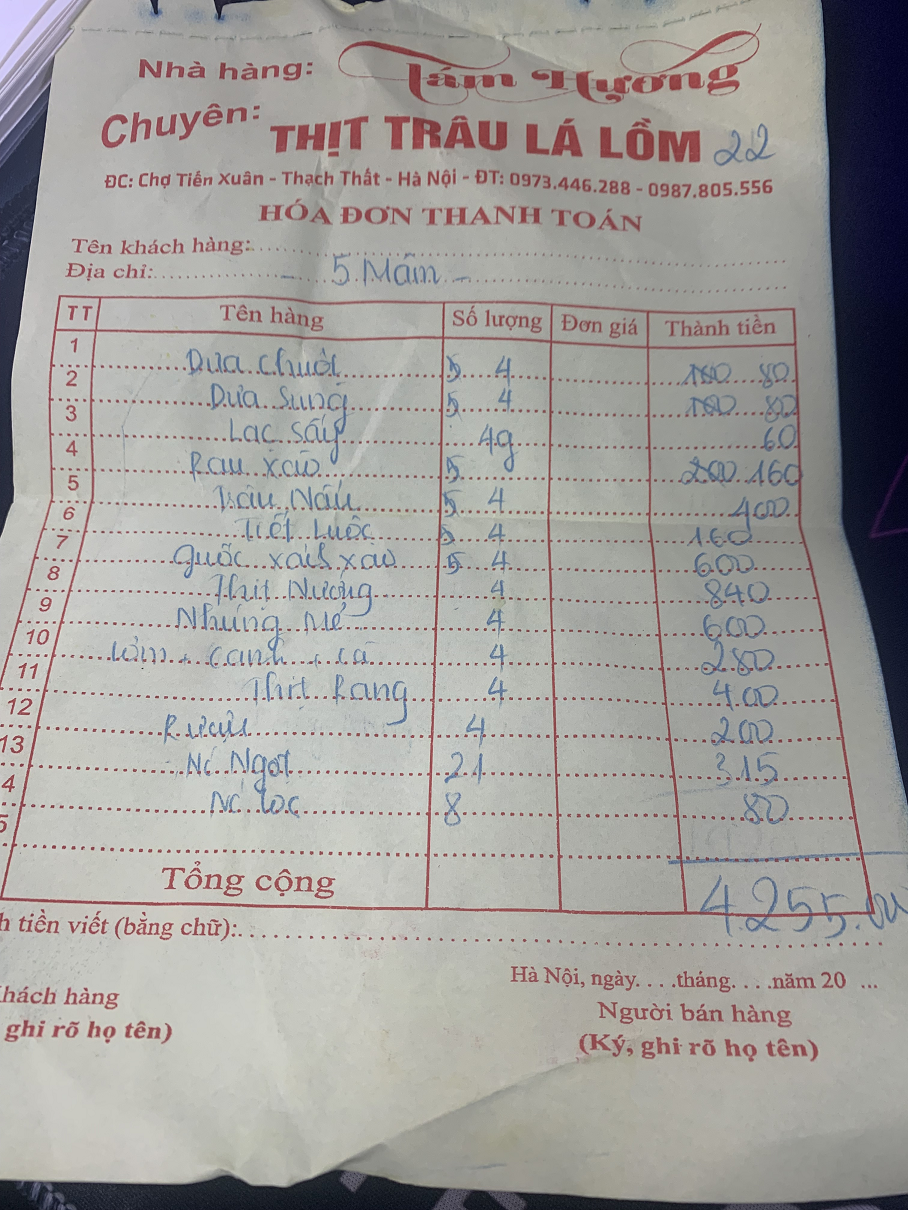 Nhà hàng: Tám Hương
Chuyên: THỊT TRÂU LÁ LỒM 22
ĐC: Chợ Tiến Xuân - Thạch Thất - Hà Nội - ĐT: 0973.446.288 - 0987.805.556
HÓA ĐƠN THANH TOÁN
Tên khách hàng:
Địa chỉ: - 5 Mâm -
TT Tên hàng Số lượng Đơn giá Thành tiền
1 Dưa chuột 5 4 100 80
2 Dưa Sung 5 4 100 80
3 Lạc sấy 4g 60
4 Rau xào 5 200 160
5 Nấu 5 4 400
6 Tiết Luộc 5 4 160
7 xào 5 4 600
8 Thịt Nướng 4 840
9 Nhúng Mẻ 4 600
10 Cơm + canh + cà 4 280
11 Thịt Rang 4 400
12 Rượu 4 200
13 Nc Ngọt 21 315
4 Nc lọc 8 80
5
Tổng cộng 4.255.000
h tiền viết (bằng chữ):
Hà Nội, ngày. . . .tháng. . . .năm 20 ...
hách hàng Người bán hàng
ghi rõ họ tên) (Ký, ghi rõ họ tên)